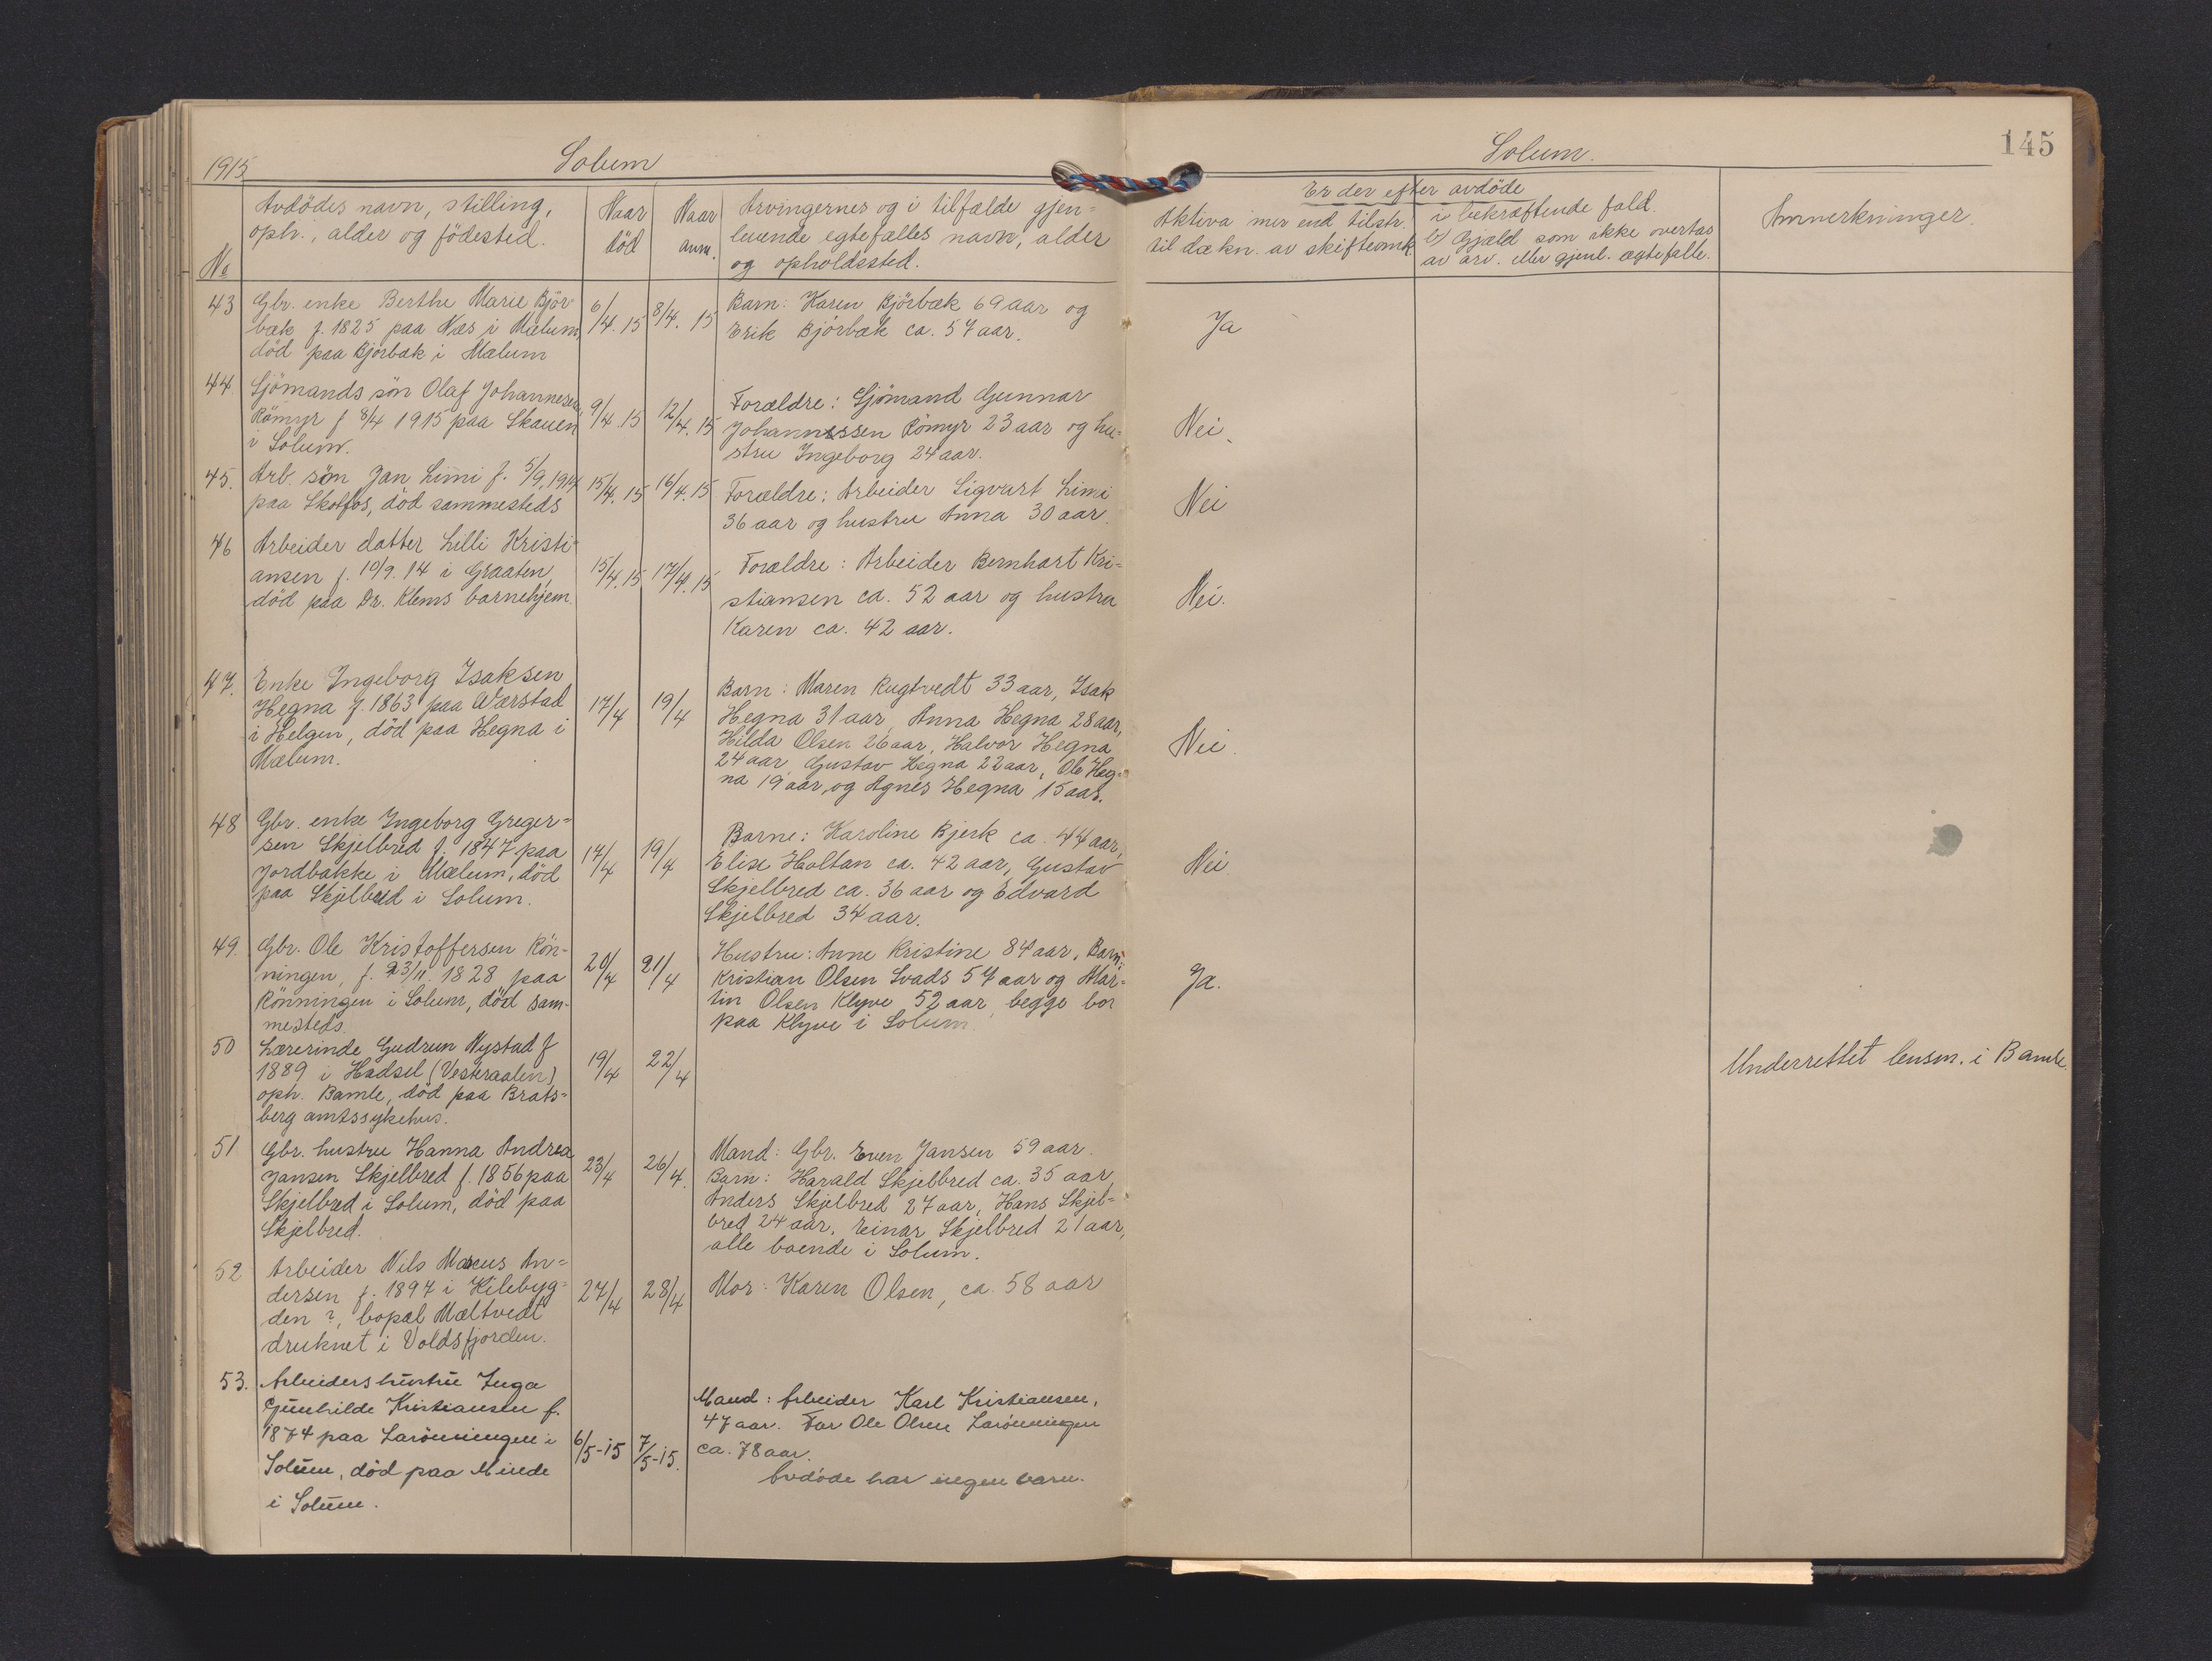 1915
Solum
Solum.
145
No
Avdödes navn, stilling,
oph., alder og födested.
Naar
död
Naar
anm.
Arvingernes og i tilfælde gjen-
levende egtefælles navn, alder
og opholdssted.
Er der efter avdöde
Aktiva mer end tilstr.
til dækn. av skifteomk.
i bekræftende fald.
b) Gjæld som ikke overtas
av arv. eller gjenl. ægtefælle.
Anmerkninger.
43
Gbr. enke Berthe Marie Bjór-
bæk f. 1825 paa Næs i Mælum,
död paa Bjórbæk i Mælum
6/4. 15
8/4. 15
Barn: Karen Bjórbæk 69 aar og
Erik Bjórbæk ca. 57 aar.
Ja
44.
Sjömands sön Olaf Johannesen
Römyr f 8/4 1915 paa Skauen
i Solum.
9/4. 15
12/4. 15
Forældre: Sjömand Gunnar
Johannessen Römyr 23 aar og hu-
stru Ingeborg 24 aar.
Nei.
45.
Arb. sön Jan Limi f. 5/9. 1914
paa Skotfos, död sammesteds
15/4. 15
16/4. 15
Forældre: Arbeider Sigvart Limi
36 aar og hustru Anna 30 aar.
Nei
46
Arbeider datter Lilli Kristi-
ansen f. 10/9. 14 i Graaten,
död paa Dr. Klems barnehjem.
15/4. 15
17/4. 15
Forældre: Arbeider Bernhart Kri-
stiansen ca. 52 aar og hustru
Karen ca. 42 aar.
Nei.
47.
Enke Ingeborg Isaksen
Hegna f. 1863 paa Værstad
i Helgen, död paa Hegna i
Mælum.
17/4
19/4
Barn: Maren Rugtvedt 33 aar, Isak
Hegna 31 aar, Anna Hegna 28 aar,
Hilda Olsen 26 aar, Halvor Hegna
24 aar, Gustav Hegna 22 aar, Ole Heg-
na 19 aar, og Agnes Hegna 15 aar.
Nei.
48
Gbr. enke Ingeborg Greger-
sen Skjelbred f. 1847 paa
Jordbakke i Mælum, död
paa Skjelbred i Solum.
17/4
19/4
Barne: Karoline Bjerk ca. 44 aar,
Elise Holtan ca. 42 aar, Gustav
Skjelbred ca. 36 aar og Edvard
Skjelbred 34 aar.
Nei.
49.
Gbr. Ole Kristoffersen Rön-
ningen, f. 23/11 1828 paa
Rönningen i Solum, död sam-
mesteds.
20/4
21/4
Hustru: Anne Kristine 84 aar. Barn:
Kristian Olsen Svads 57 aar og Mar-
tin Olsen Klyve 52 aar, begge bor
paa Klyve i Solum
Ja.
50
Lærerinde Gudrun Nystad f
1889 i Hadsel (Vesteraalen)
oph. Bamle, död paa Brats-
berg amtssykehus.
19/4
22/4
Underrettet lensm. i Bamle.
51
Gbr. hustru Hanna Andrea
Jansen Skjelbred f. 1856 paa
Skjelbred i Solum, död paa
Skjelbred.
23/4
26/4.
Mand: Gbr. Even Jansen 59 aar.
Barn: Harald Skjelbred ca. 35 aar,
Anders Skjelbred 27 aar, Hans Skjel-
bred 24 aar, Einar Skjelbred 21 aar,
alle boende i Solum.
52
Arbeider Nils Marcus An-
dersen f. 1897 i Kilebyg-
den?, bopæl Mæltvedt
druknet i Voldsfjorden.
27/4
28/4
Mor: Karen Olsen, ca. 58 aar
53.
Arbeiders hustru Inga
Gunhilde Kristiansen f.
1874 paa Larönningen i
Solum, död paa Minde
i Solum.
6/5-15
7/5-15.
Mand: Arbeider Karl Kristiansen,
47 aar. Far Ole Olsen Larönningen
ca. 78 aar.
Avdöde har ingen barn.